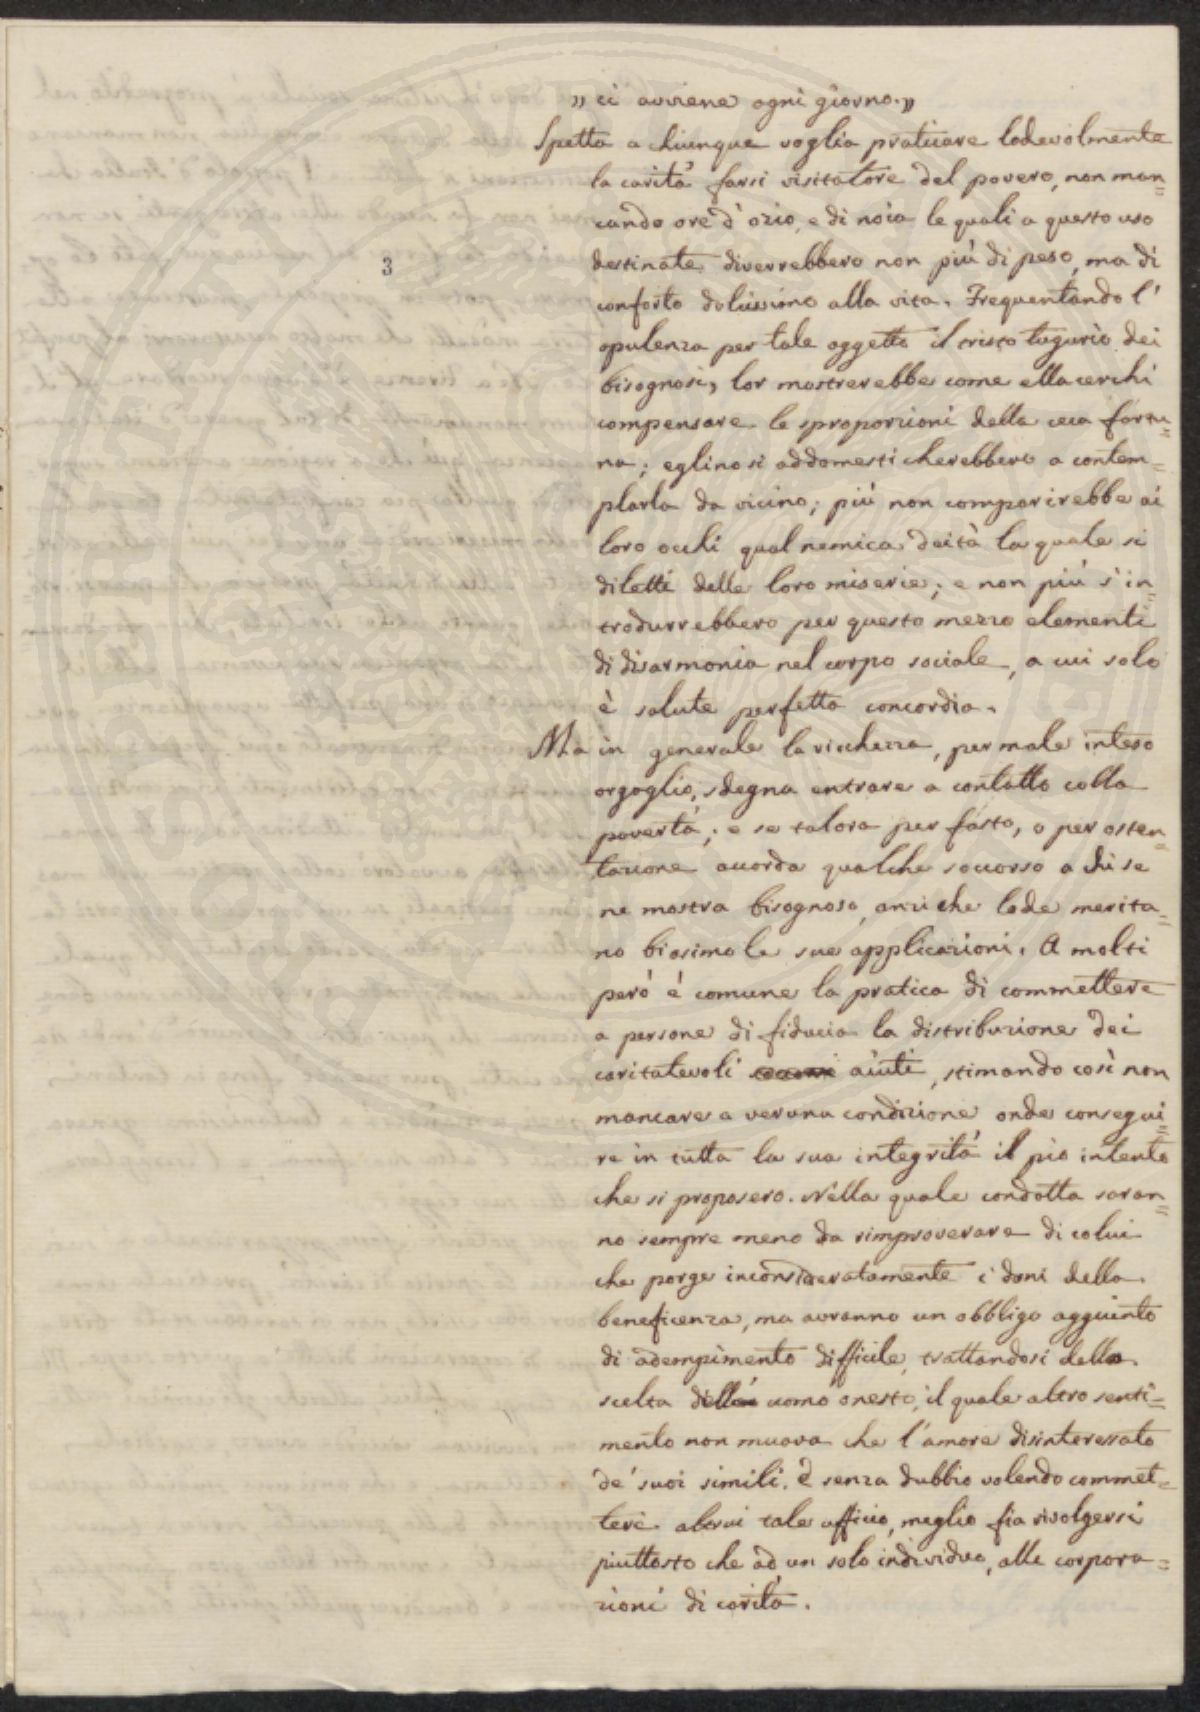 „ ci avviene ogni giorno.„
Spetta a chiunque voglia praticare lodevolmente
la carità farsi visitatore del povero, non man=
cando ore d'ozio, e di noia le quali a questo uso
destinate diverrebbero non più di peso, ma di
3
conforto dolcissimo alla vita. Frequentando l'
opulenza per tale oggetto il tristo tugurio dei
bisognosi, lor mostrerebbe come ella cerchi
compensare le sproporzioni della ceca fortu=
na; eglino si addomesticherebbero a contem=
plarla da vicino; più non comparirebbe ai
loro occhi qual nemica deità la quale si
diletti delle loro miserie; e non più s'in=
trodurrebbero per questo mezzo elementi
di disarmonia nel corpo sociale, a cui solo
è salute perfetta concordia.
Ma in generale la ricchezza, per male inteso
orgoglio, sdegna entrare a contatto colla
povertà; e se talora per fasto, o per osten=
tazione accorda qualche soccorso a chi se
ne mostra bisognoso, anzi che lode merita=
no biasimo le sue applicazioni. A molti
però è comune la pratica di commettere
a persone di fiducia la distribuzione dei
caritatevoli aiuti, stimando così non
mancare a veruna condizione onde consegui=
re in tutta la sua integrità il pio intento
che si proposero. Nella quale condotta saran=
no sempre meno da rimproverare di colui
che porge inconsideratamente i doni della
beneficenza, ma avranno un obbligo aggiunto
di adempimento difficile, trattandosi della
scelta dell' uomo onesto, il quale altro senti=
mento non muova che l'amore disinteressato
de' suoi simili. E senza dubbio volendo commet=
tere altrui tale officio, meglio fia rivolgersi
piuttosto che ad un solo individuo, alle corpora=
zioni di carità.